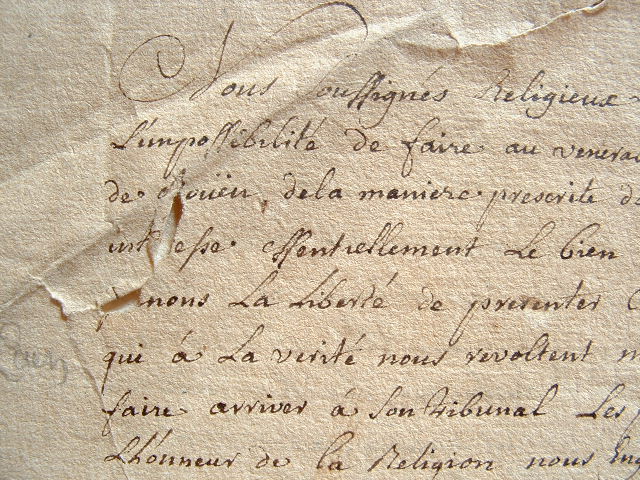 Nous soussignés Religieux
L'impossibilité de faire au venera
de Roüen, de la maniere prescrite d
esse essentiellement Le bien
nons La Liberté de presenter
qui à La verité nous revoltent
faire arriver à son tribunal Les
L'honneur de la Religion nous Eng